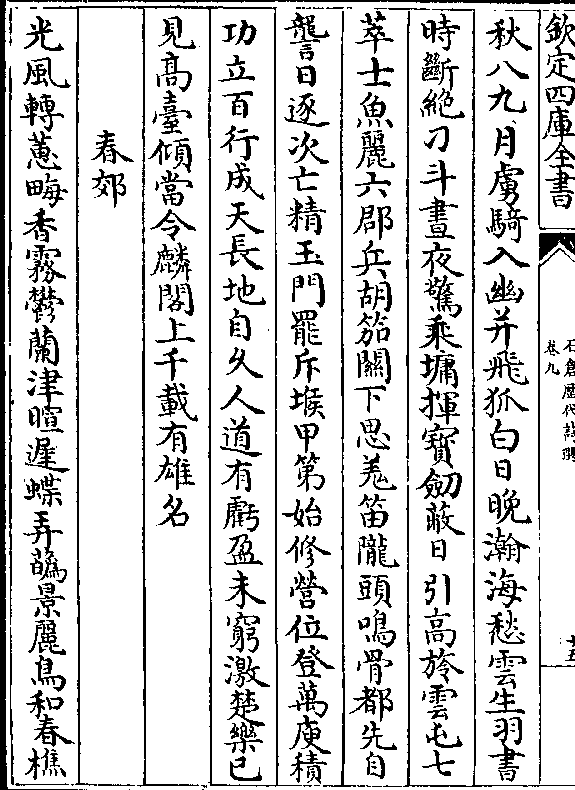 欽定四庫全書
石倉歷代詩選
卷九
十五
秋八九月虜騎入幽并飛狐白日晚瀚海愁雲生羽書
時斷絶刁斗晝夜驚乘墉揮寶劒蔽日引高旍雲屯七
萃士魚麗六郡兵胡笳闗下思羌笛隴頭鳴骨都先自
讋日逐次亡精玉門罷斥堠甲第始修營位登萬庾積
功立百行成天長地自久人道有虧盈未窮激楚樂已
見髙臺傾當令麟閣上千載有雄名
春郊
光風轉蕙畮香霧鬱蘭津暄遲蝶弄蘤景麗鳥和春樵